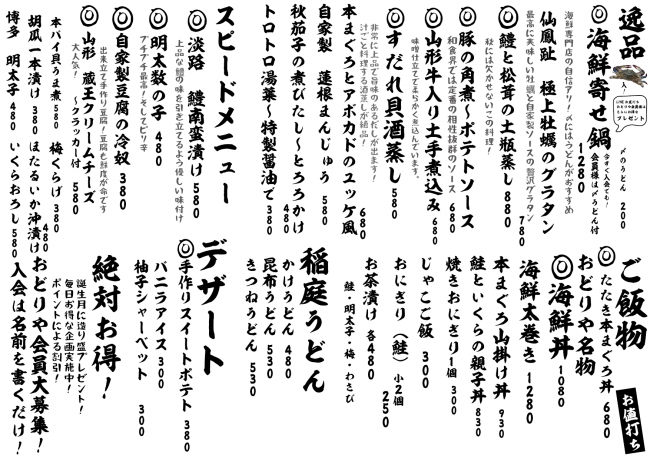 逸品
◎海鮮寄せ鍋 1280
今すぐ入会でも!
会員様は〆うどん付
入り
プレゼント
〆のうどん 200
海鮮専門店の自信アリ!〆にはうどんがおすすめ
仙鳳趾 極上牡蠣のグラタン 780
最高に美味しい牡蠣と自家製ソースの贅沢グラタン
◎鱧と松茸の土瓶蒸し 880
秋には欠かせないこの料理!
◎豚の角煮~ポテトソース 680
和食界では定番の相性抜群のソース
◎山形牛入り土手煮込み 680
味噌仕立てで柔らかく煮込んでいます。
◎すだれ貝酒蒸し 580
非常に上品で旨味のあるだしが出ます!
汁ごと料理する酒蒸しが絶品!
本まぐろとアボカドのユッケ風 680
自家製 蓮根まんじゅう 580
秋茄子の煮びたし~とろろかけ 480
トロトロ湯葉~特製醤油で 380
スピードメニュー
◎淡路 鱧南蛮漬け 580
上品な鱧の味を引き立てるよう優しい味付け
◎明太数の子 480
プチプチ最高!そしてピリ辛
◎自家製豆腐の冷奴 380
出来立て手作り豆腐!豆腐も鮮度が命です
◎山形 蔵王クリームチーズ
~クラッカー付 580
大人気!
本バイ貝うま煮 580 梅くらげ 380
胡瓜一本漬け 380 ほたるいか沖漬け 480
博多 明太子 480 いくらおろし 580
ご飯物
お値打ち
◎たたき本まぐろ丼 680
おどりや名物
◎海鮮丼 1080
海鮮太巻き 1280
本まぐろ山掛け丼 930
鮭といくらの親子丼 830
焼きおにぎり1個 300
じゃこご飯 300
おにぎり(鮭)小2個 250
お茶漬け 各480
鮭・明太子・梅・わさび
稲庭うどん
かけうどん 480
昆布うどん 530
きつねうどん 530
デザート
◎手作りスイートポテト 380
バニラアイス 300
柚子シャーベット 300
絶対お得!
誕生月に造り盛プレゼント!
毎日お得な企画実施中!
ポイントによる割引!
おどりや会員大募集!
入会は名前を書くだけ!